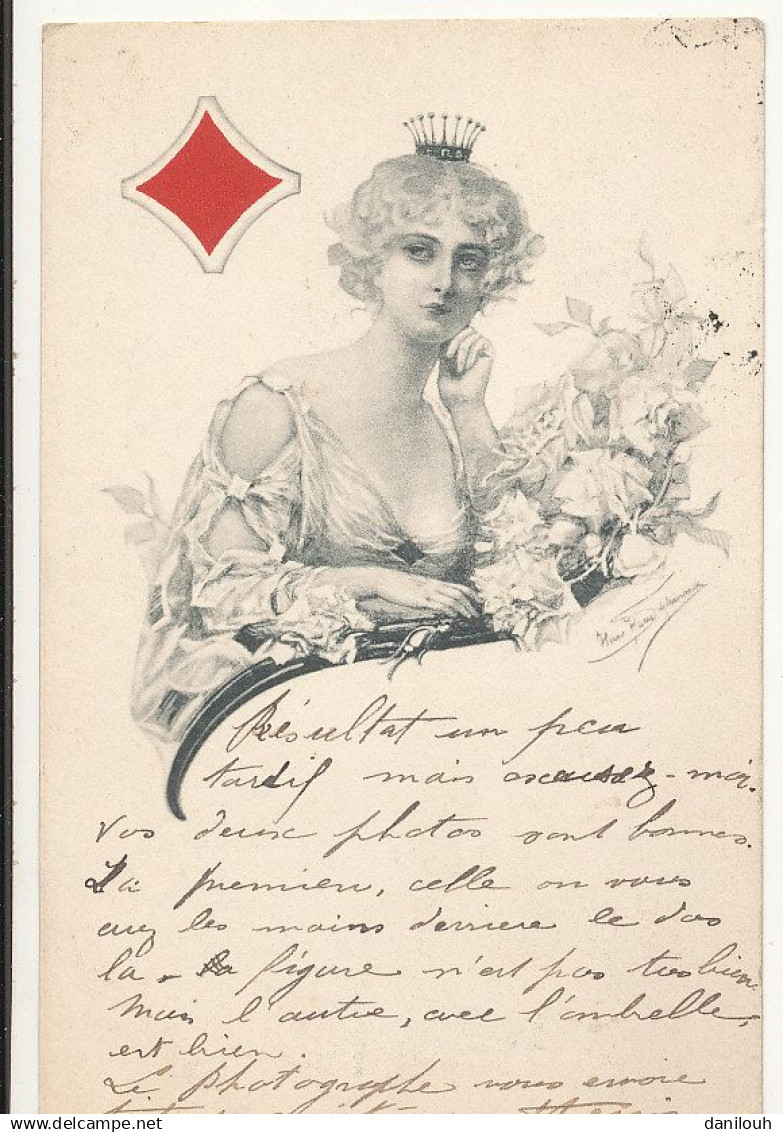 Résultat un peu
tardif mais excusez-moi.
Vos deux photos sont bonnes.
La premiere, celle ou vous
avez les mains derriere le dos
la figure n'est pas tres bien
Mais l'autre, avec l'ombrelle,
est bien.
Le photographe vous envoie
danilouh